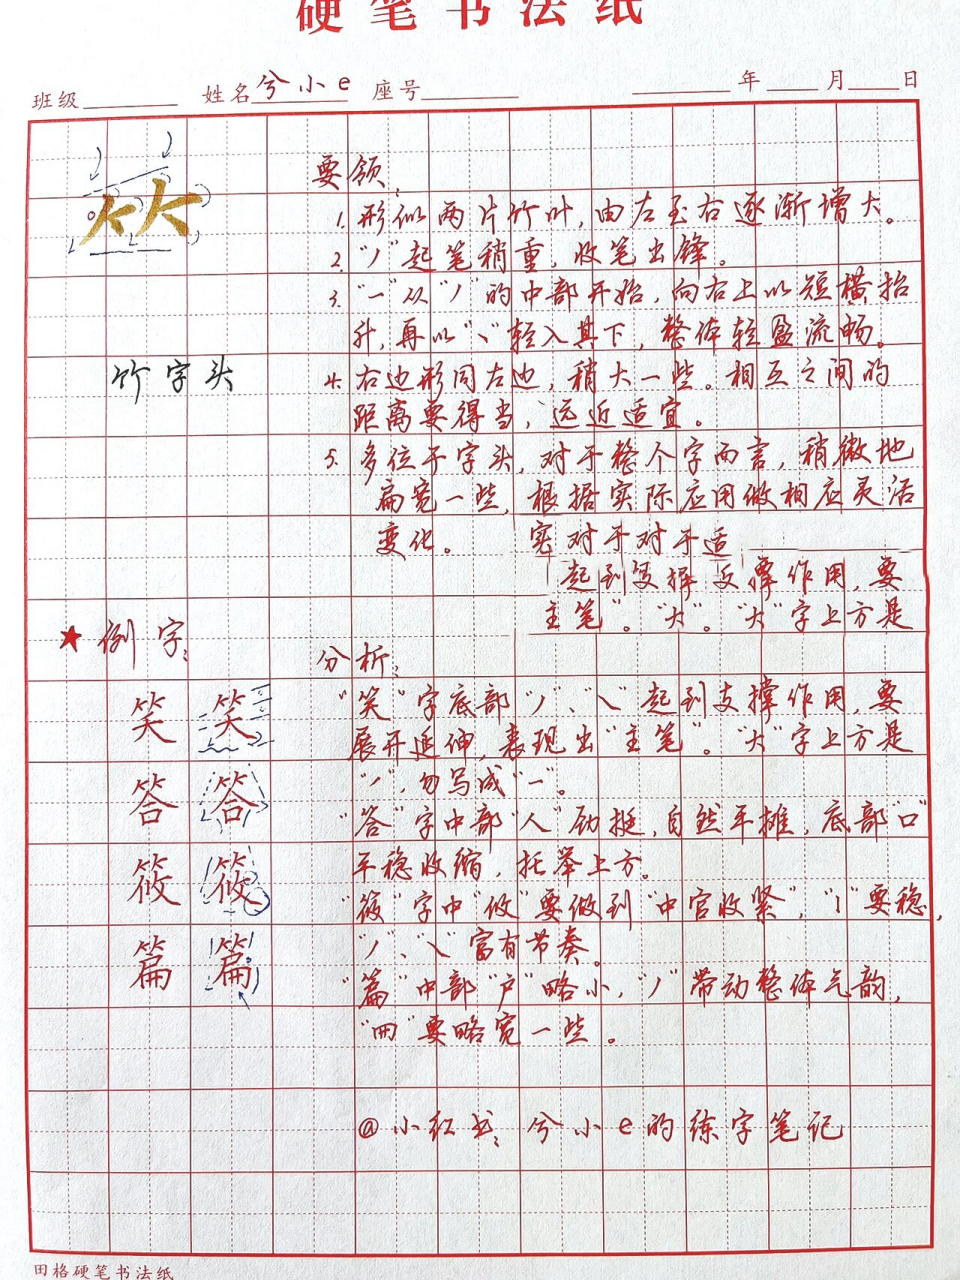 硬笔书法纸
班级 姓名 兮小e 座号 年 月 日
要领:
1. 形似两片竹叶,由左至右逐渐增大。
2. "丿"起笔稍重,收笔出锋。
3. "一"从"丿"的中部开始,向右上以短横抬
升,再以"丶"轻入其下,整体轻盈流畅。
竹字头
4. 右边形同左边,稍大一些。相互之间的
距离要得当,远近适宜。
5. 多位于字头,对于整个字而言,稍微地
扁宽一些,根据实际应用做相应灵活
变化。 宽对于对于适
起到支撑反撑作用,要
主笔"。"大"。"大"字上方是
★例字:
分析:
笑 笑
"笑"字底部"丿"、"㇏"起到支撑作用,要
展开延伸,表现出"主笔"。"大"字上方是
"丿",勿写成"一"。
答 答
"答"字中部"人"劲挺,自然平摊,底部"口"
平稳收缩,托举上方。
筱 筱
"筱"字中"攸"要做到"中宫收紧","丨"要稳,
"丿"、"㇏"富有节奏。
篇 篇
"篇"中部"户"略小,"丿"带动整体气韵,
"冊"要略宽一些。
@小红书:兮小e的练字笔记
田格硬笔书法纸